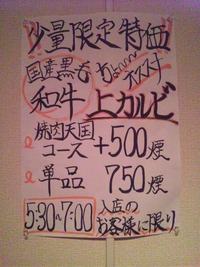 少量限定特価
国産黒毛
和牛
ちょ〜〜オススメ
上カルビ
焼肉天国
コース +500煙
単品 750煙
5:30〜7:00
入店の
お客様に限り